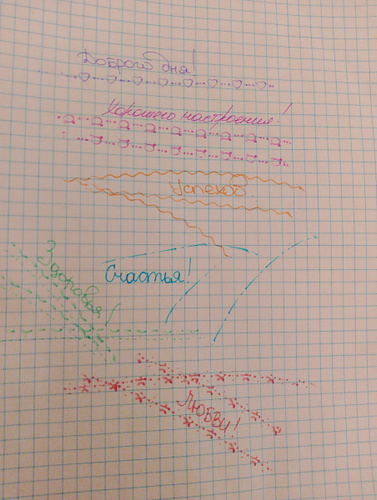 Доброго дня!
Хорошего настроения!
Успехов
Счастья!
Здоровья!
Любви!